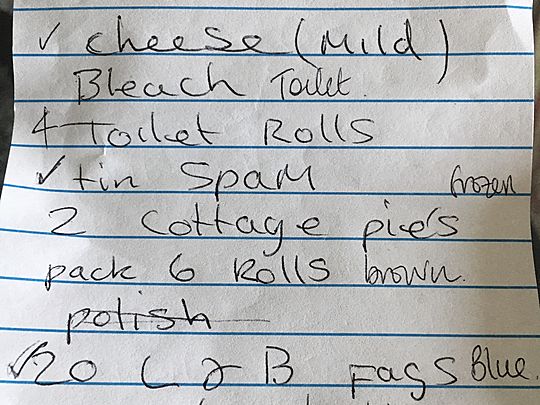 ✓ cheese (Mild)
Bleach Toilet.
4 Toilet Rolls
✓ tin Spam
frozen
2 Cottage pie's
pack 6 Rolls brown.
polish
✓ 20 L & B Fags Blue.